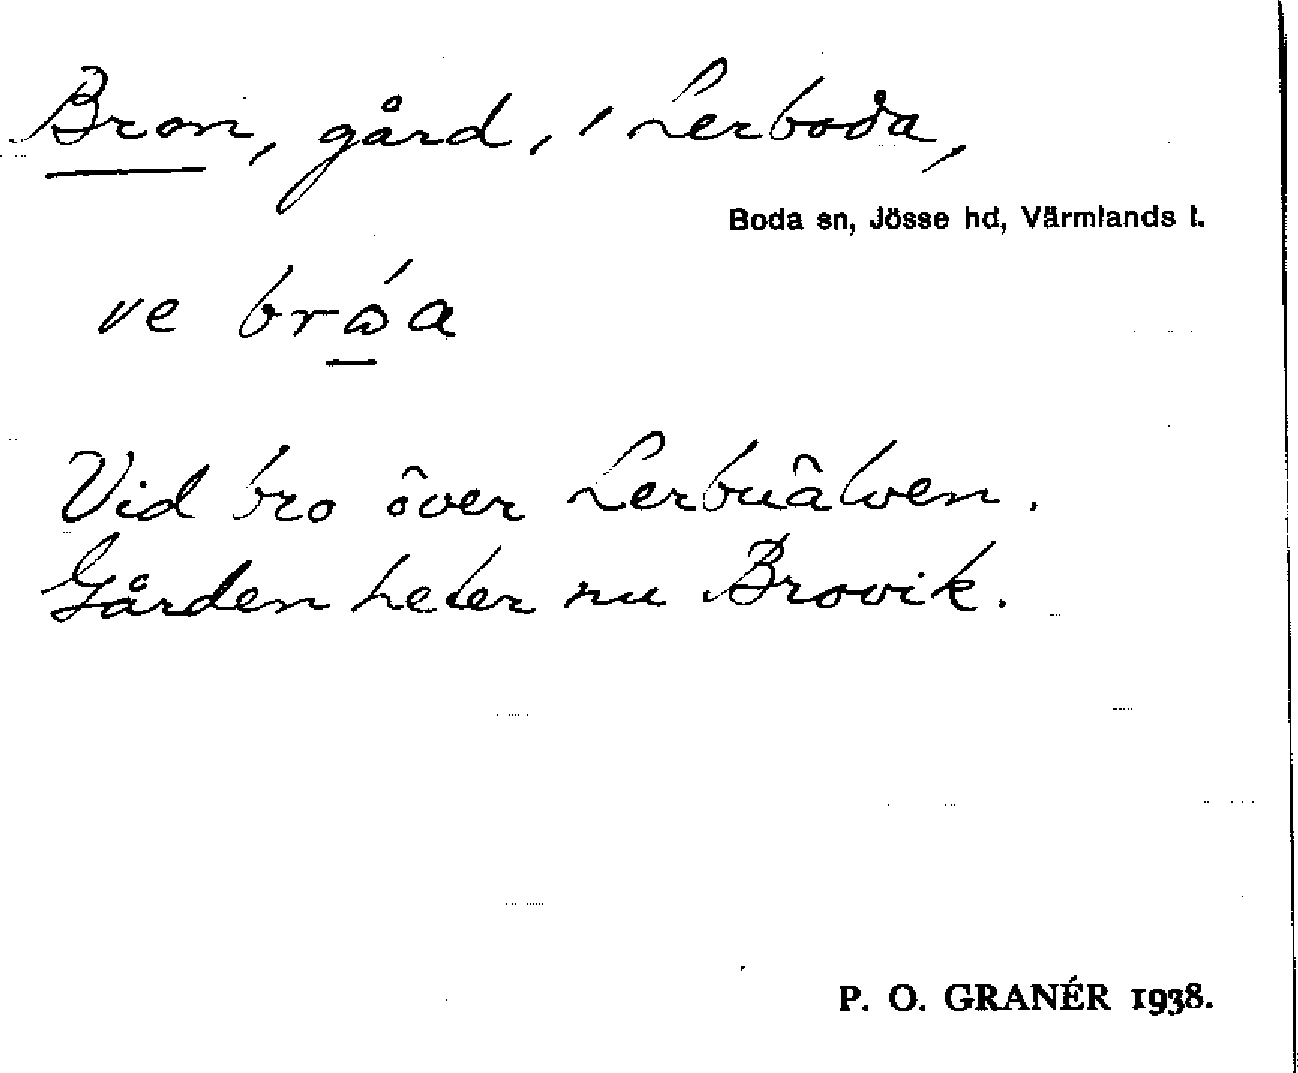 Bron, gård, i Lerboda,
Boda sn, Jösse hd, Värmlands l.
ve brώa
Vid bro över Lerbuälven.
Gården heter nu Brovik.
P. O. GRANÉR 1938.